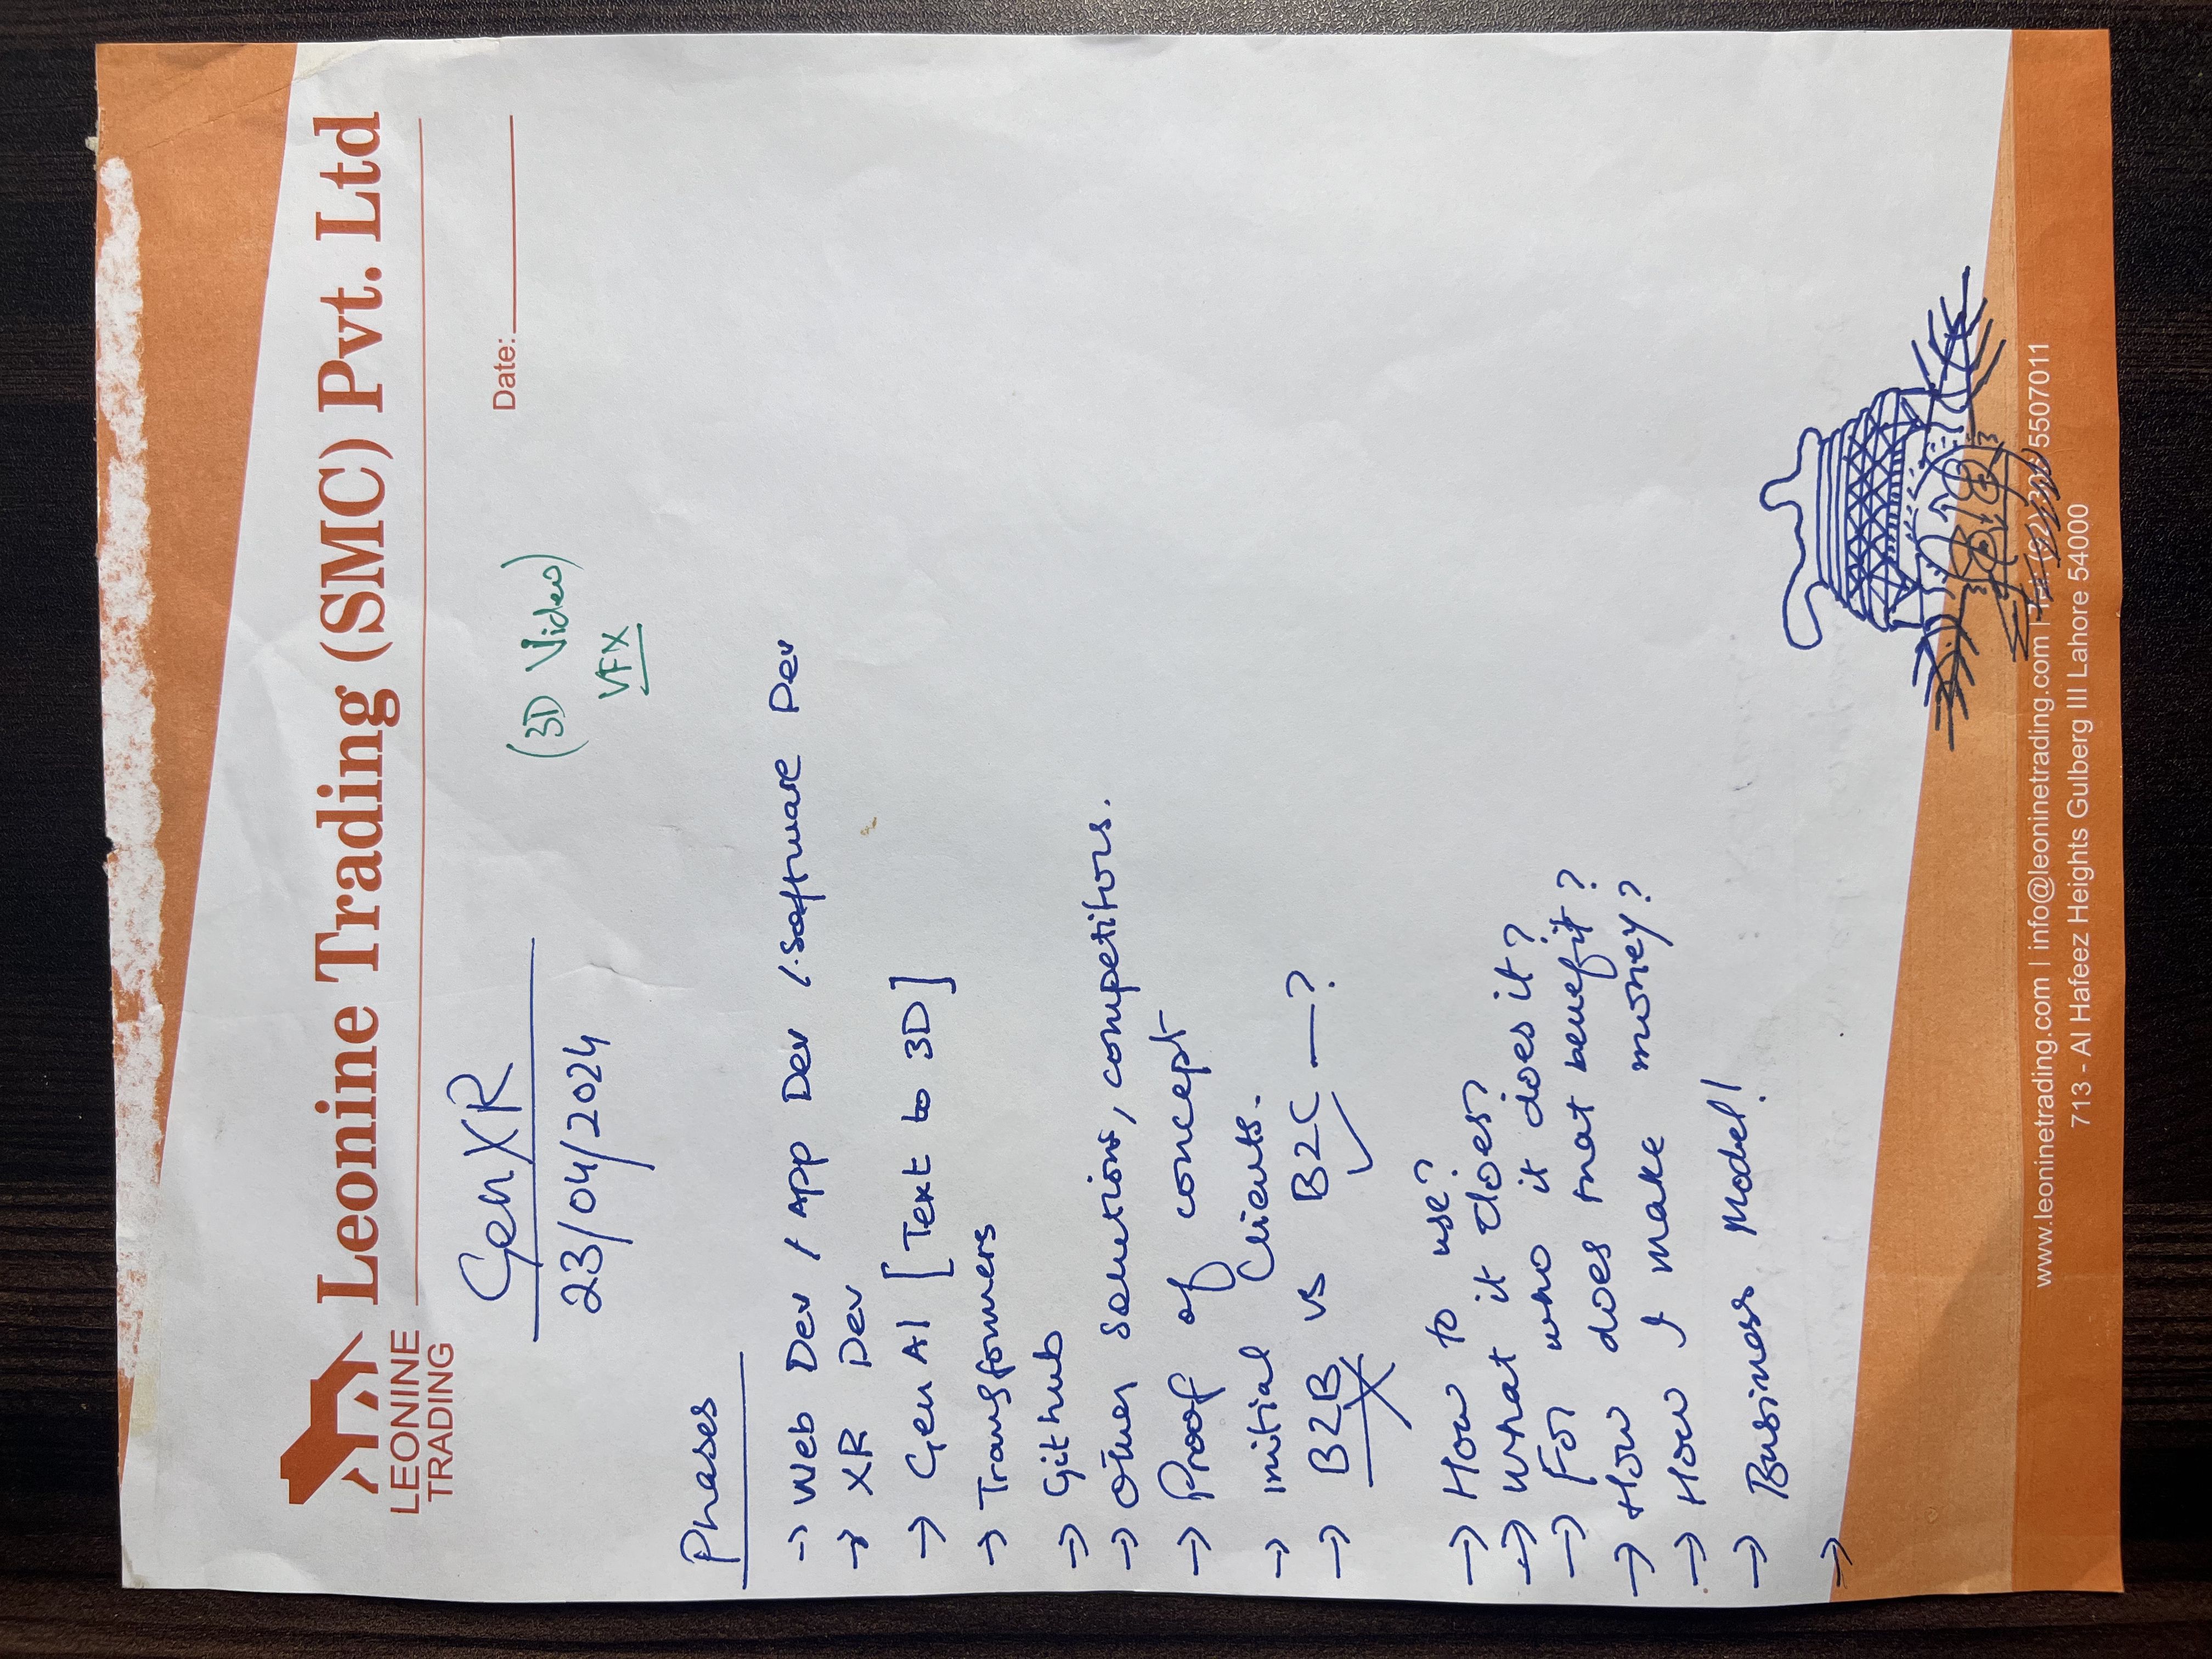 Leonine Trading (SMC) Pvt. Ltd
LEONINE
TRADING
Date:
GenXR
23/04/2024
(3D Video)
VFX
Phases
→ Web Dev / App Dev / Software Dev
→ XR Dev
→ Gen AI [Text to 3D]
→ Transformers
→ Github
→ Other solutions, competitors.
→ Proof of concept
→ initial Clients.
→ B2B vs B2C —?
→ How to use?
→ What it does?
→ For who it does it?
→ How does that benefit?
→ How I make money?
→ Business Model!
→
www.leoninetrading.com | info@leoninetrading.com | 5507011
713 - Al Hafeez Heights Gulberg III Lahore 54000